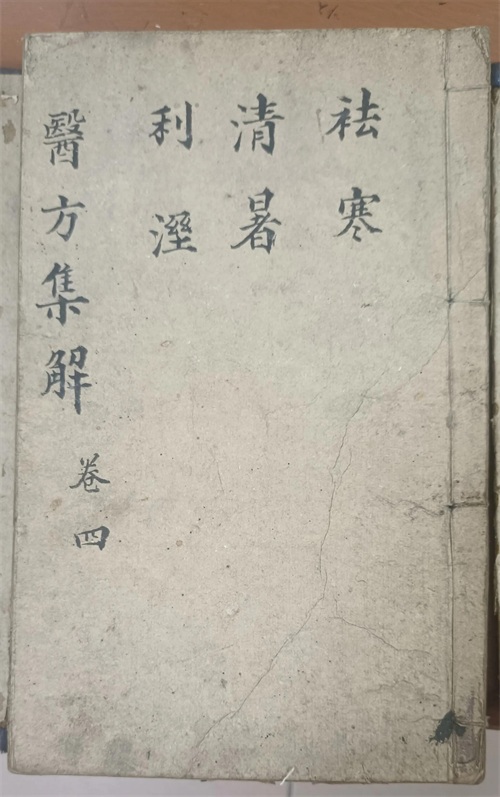 祛寒
清暑
利溼
醫方集解
卷四